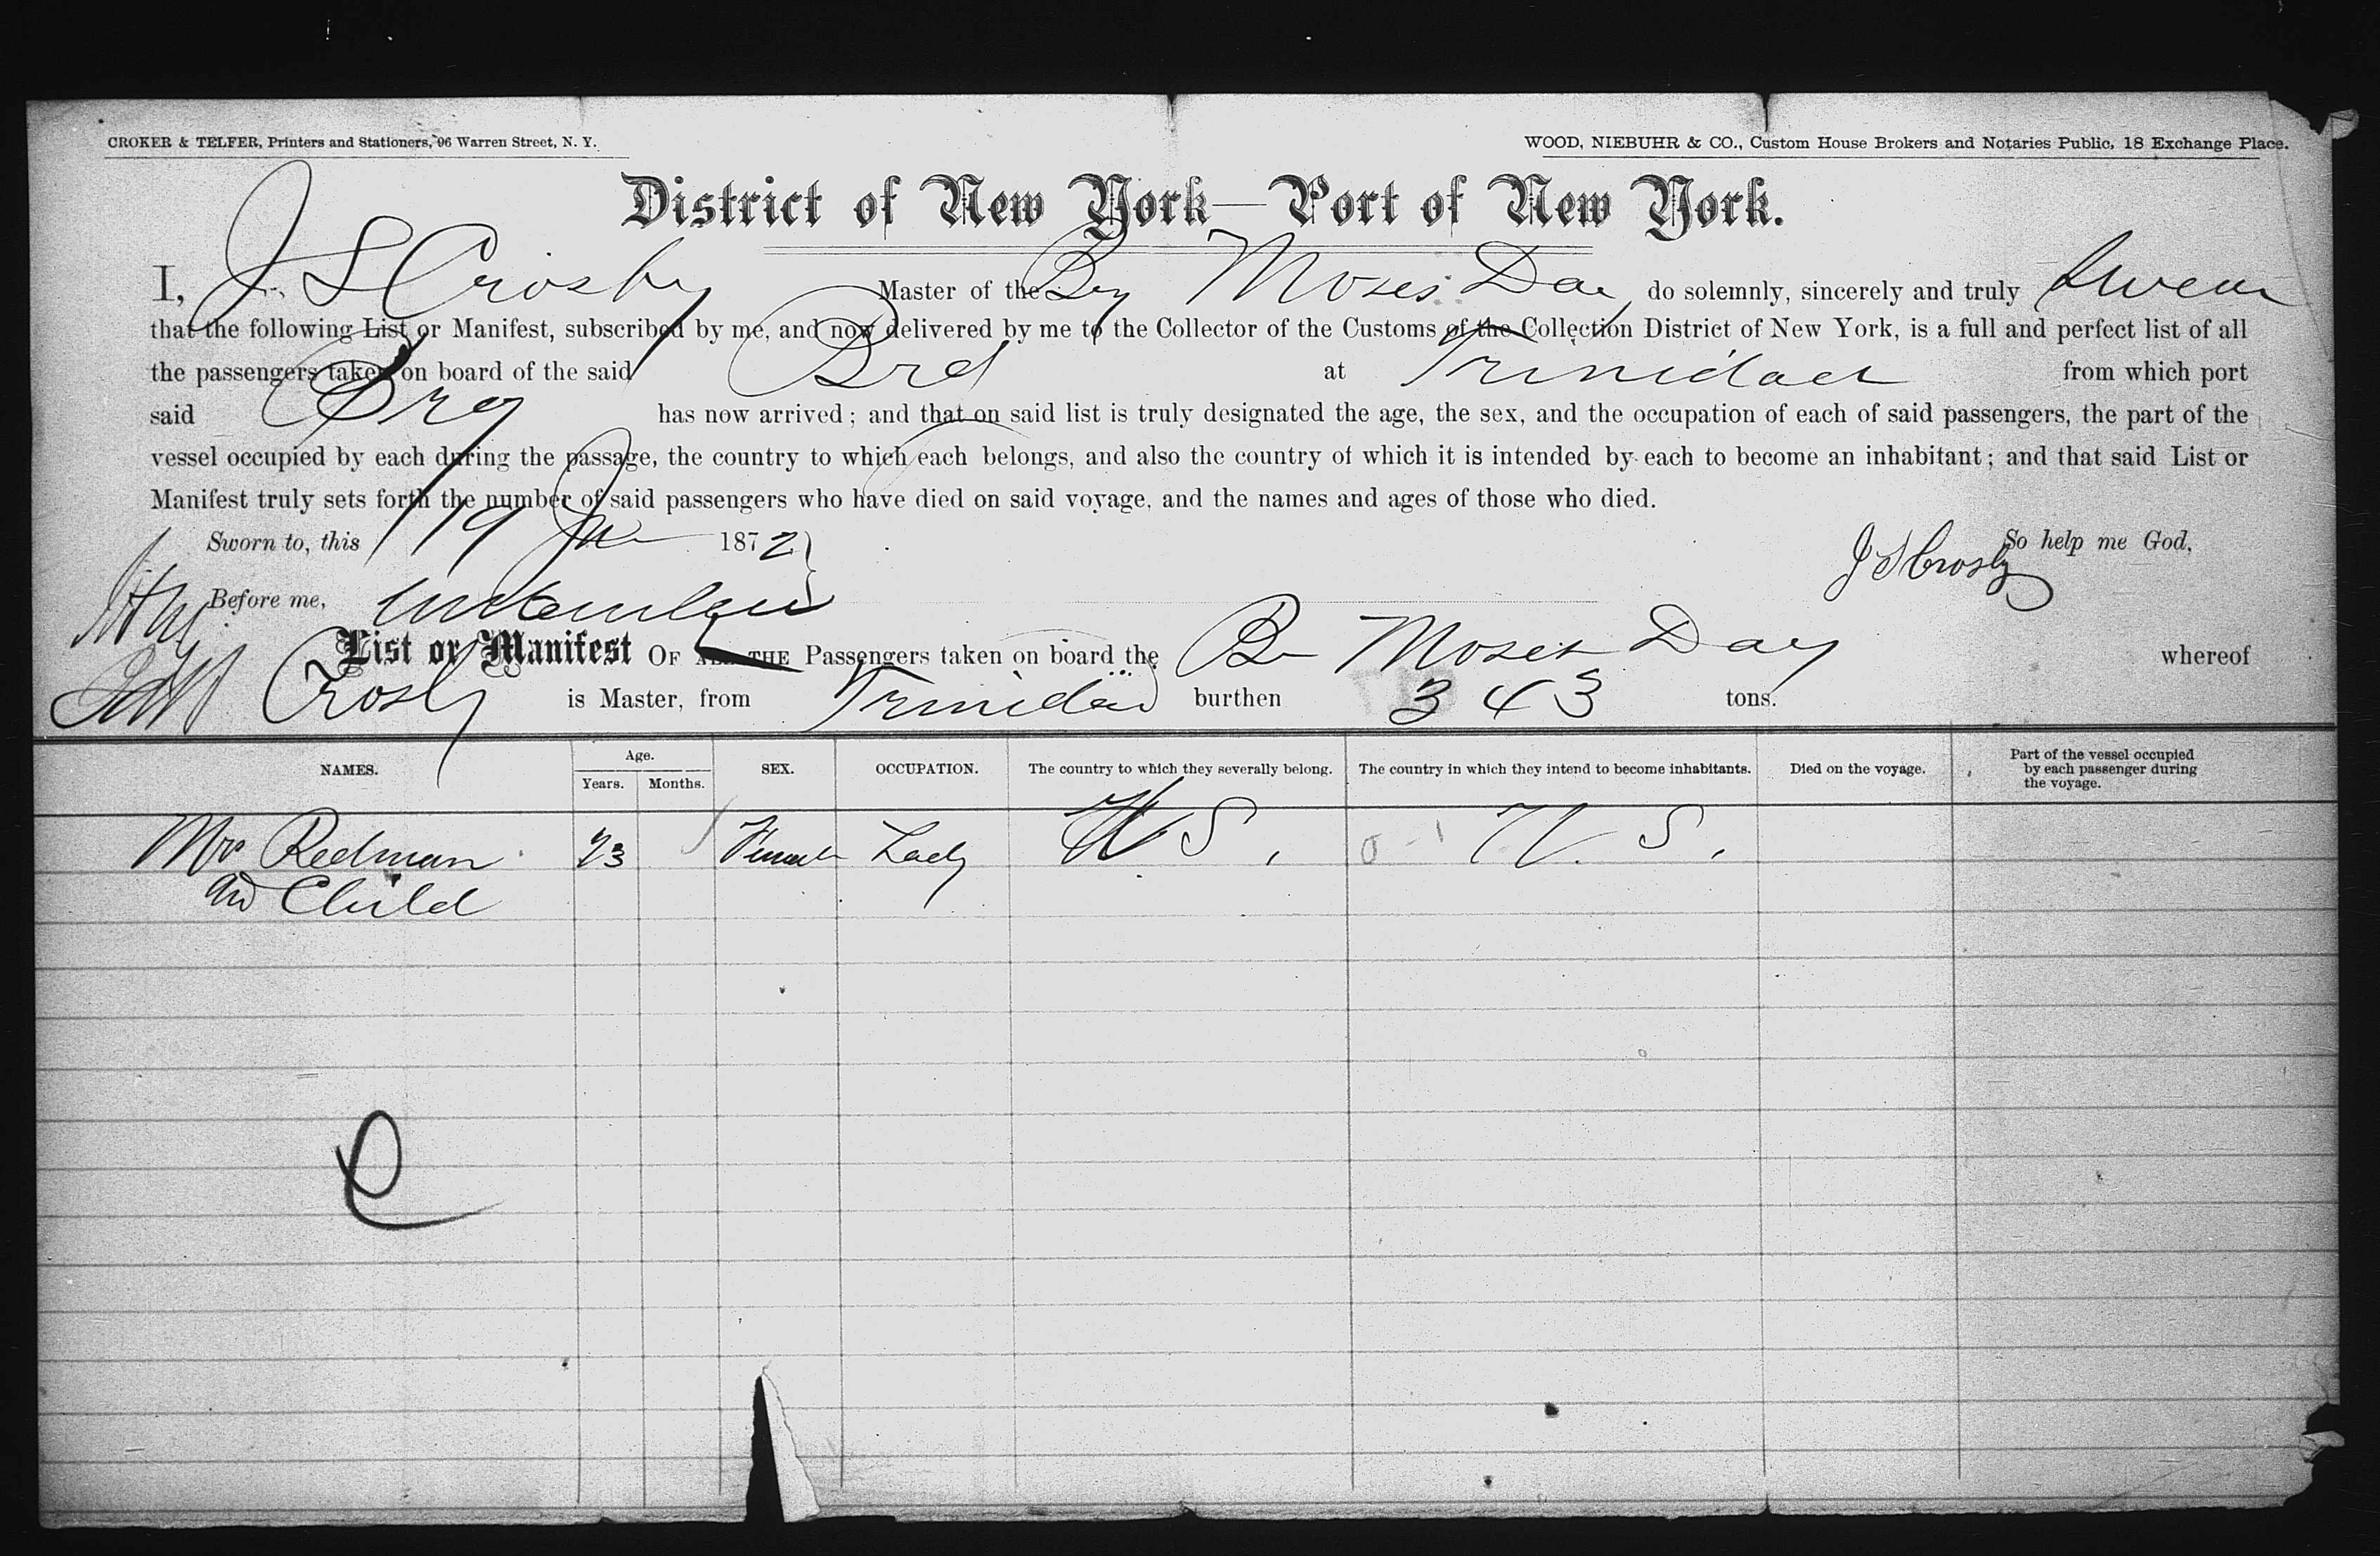 CROKER & TELFER, Printers and Stationers, 96 Warren Street, N. Y.
WOOD, NIEBUHR & CO., Custom House Brokers and Notaries Public, 18 Exchange Place.
District of New York—Port of New York.
I, J. S Crosby Master of the Brg Moses Day do solemnly, sincerely and truly Swear
that the following List or Manifest, subscribed by me, and now delivered by me to the Collector of the Customs of the Collection District of New York, is a full and perfect list of all
the passengers taken on board of the said Brg at Trinidad from which port
said Brg has now arrived; and that on said list is truly designated the age, the sex, and the occupation of each of said passengers, the part of the
vessel occupied by each during the passage, the country to which each belongs, and also the country of which it is intended by each to become an inhabitant; and that said List or
Manifest truly sets forth the number of said passengers who have died on said voyage, and the names and ages of those who died.
Sworn to, this 19 1872
So help me God,
J S Crosby
Before me,
List or Manifest OF ALL THE Passengers taken on board the Br Moses Day whereof
Crosby is Master, from Trinidad burthen 343 tons.
NAMES. Age. Years. Months. SEX. OCCUPATION. The country to which they severally belong. The country in which they intend to become inhabitants. Died on the voyage. Part of the vessel occupied by each passenger during the voyage.
Mrs Redman 23 Female Lady U S. U. S.
and Child